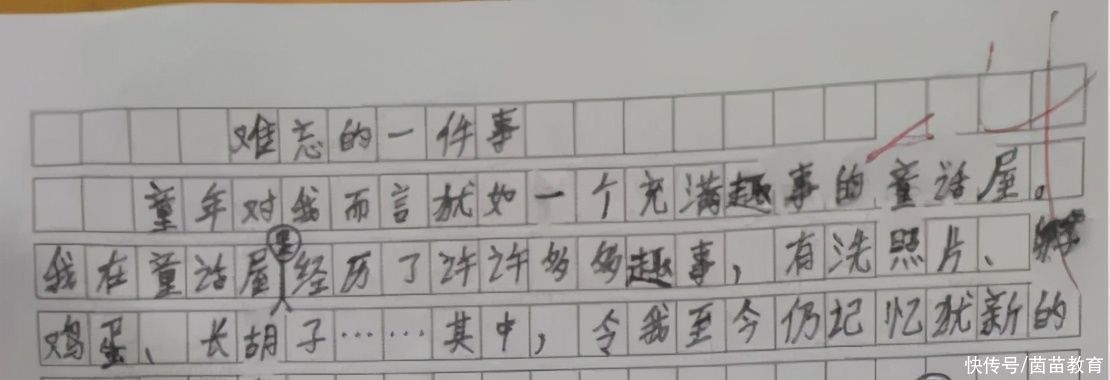 难忘的一件事
童年对我而言就如一个充满趣事的童话屋。
我在童话屋里经历了许许多多趣事，有洗照片、孵
鸡蛋、长胡子……其中，令我至今仍记忆犹新的
快传号/茵苗教育